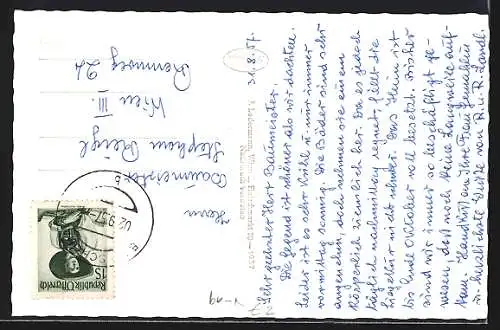 31.8.57.
Sehr geehrter Herr Baumeister.
Die Gegend ist schöner als wir dachten.
Leider ist es sehr kühl u. nur immer
vormittag sonnig. Die Bäder sind sehr
angenehm, doch nehmen sie einem
körperlich ziemlich her. Da es jedoch
täglich nachmittag regnet, fällt die
Liegekur nicht schwer. Das Heim ist
bis Ende Oktober voll besetzt. Bisher
sind wir immer so beschäftigt ge-
wesen, daß noch keine Langweile auf-
kam. Handkuß an Ihre Frau Gemahlin
u. herzlichste Grüße von R. u. R. Landl.
Herrn
Baumeister
Stephan Reigl
Wien III.
Rennweg 24
REPUBLIK ÖSTERREICH
1S